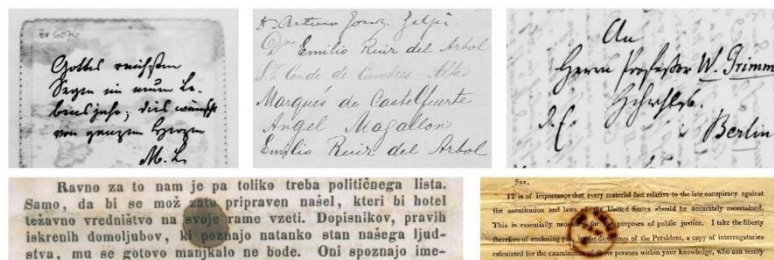 Gottes reichsten
Segen im neuen Le-
bensjahr; dies wünscht
von ganzem Herzen
M. L.
Arturo
Dn Emilio Ruiz del Arbol
Conde de
Marqués de Castelfuerte
Angel Magallon
Emilio Ruiz del Arbol
An
Herrn Professor W. Grimm
Berlin
Ravno za to nam je pa toliko treba političnega lista.
Samo, da bi se mož zato pripraven našel, kteri bi hotel
težavno vredništvo na svoje rame vzeti. Dopisnikov, pravih
iskrenih domoljubov, ki poznajo natanko stan našega ljud-
stva, mu se gotovo manjkalo ne bode. Oni spoznajo ime-
SIR,
IT is of importance that every material fact relative to the late conspiracy against
the constitution and laws of the United States should be accurately ascertained.
This is essentially necessary for the purposes of public justice. I take the liberty
therefore of enclosing you, by the directions of the President, a copy of interrogatories
calculated for the examination of those persons within your knowledge, who can testify